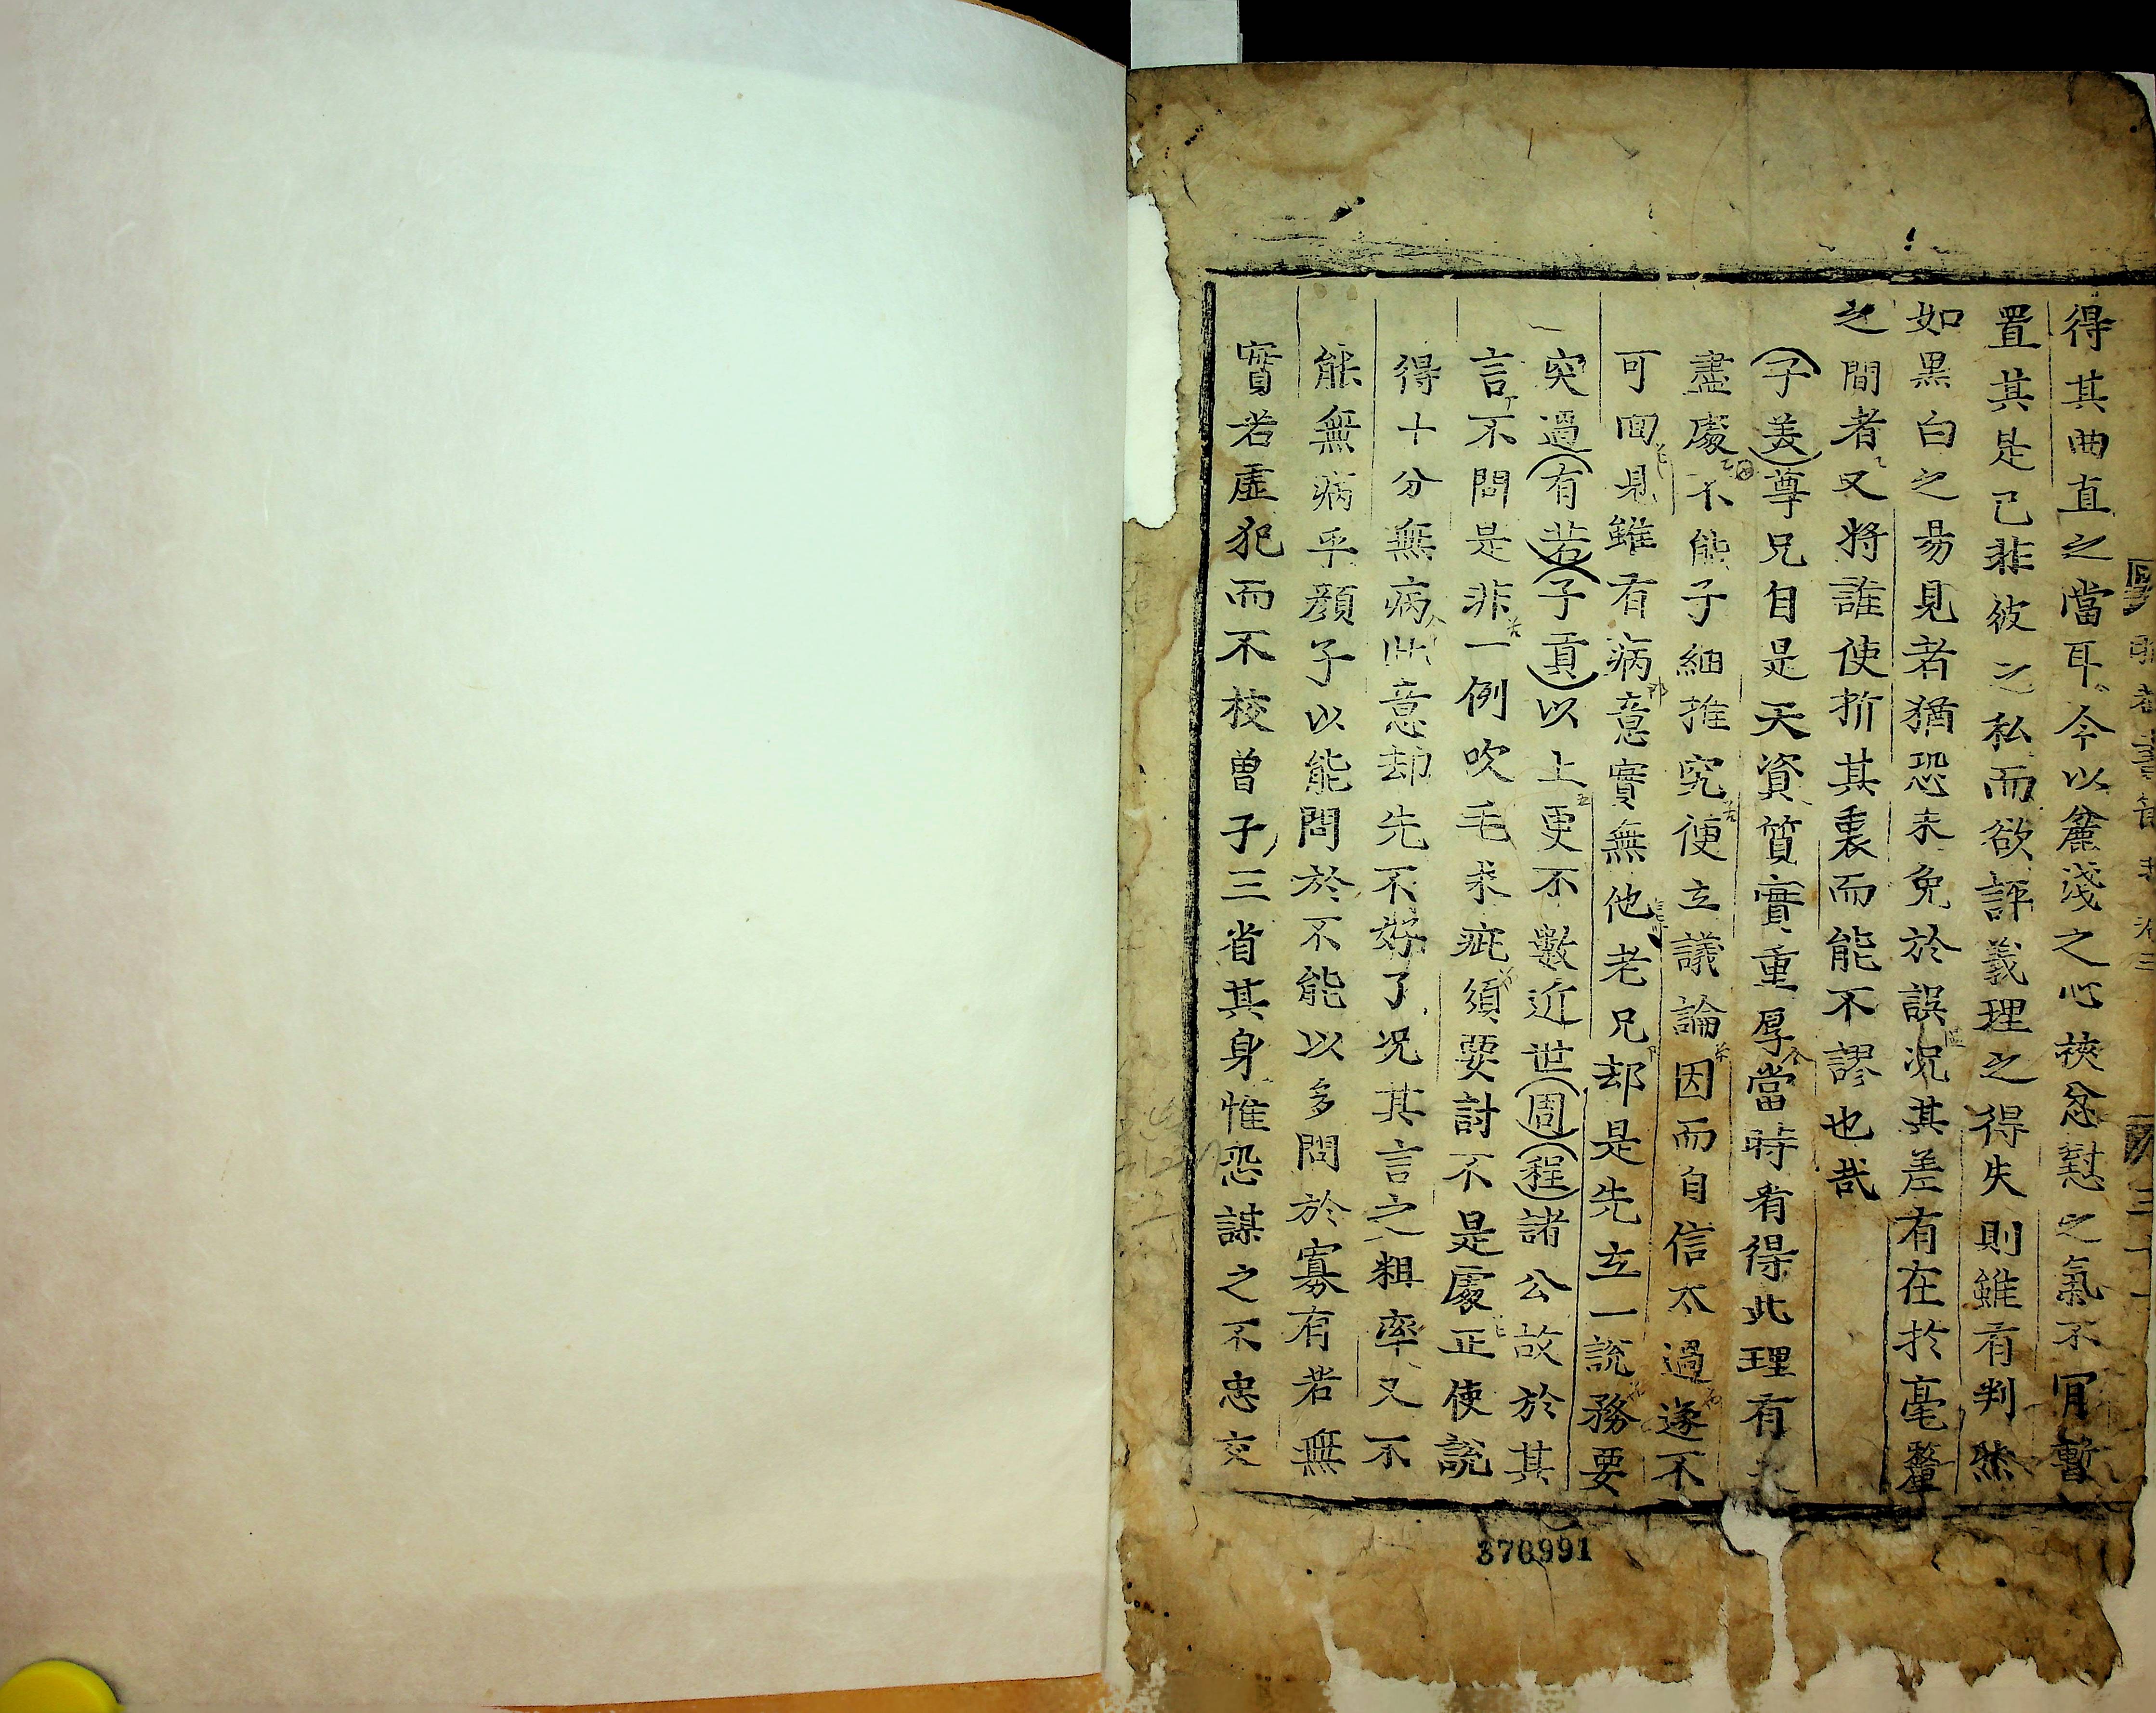 得其曲直之當耳今以麄淺之心挾忿懟之氣不肎暫
置其是己非彼之私而欲評義理之得失則雖有判然
如黒白之易見者猶恐未免於誤况其差有在於毫釐
之間者又將誰使折其衷而能不謬也哉
子美尊兄自是天資質實重厚當時看得此理有未
盡處不能子細推究便立議論因而自信太過遂不
可回見雖有病意實無他老兄却是先立一說務要
突過有若子貢以上更不數近世周程諸公故於其
言不問是非一例吹毛求疵須要討不是處正使說
得十分無病此意却先不好了况其言之粗率又不
能無病乎顔子以能問於不能以多問於寡有若無
實若虛犯而不校曾子三省其身惟恐謀之不忠交
378991